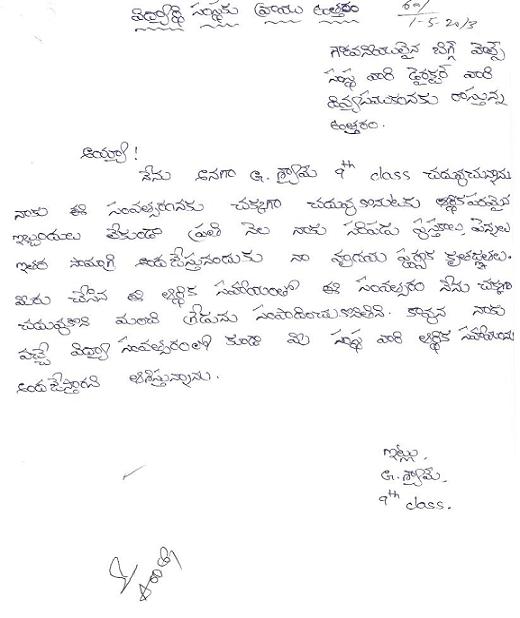 విద్యార్థి సంస్థకు వ్రాయు ఉత్తరం
1-5-2013
గౌరవనీయులైన బిగ్ హెల్ప్
సంస్థ వారి డైరెక్టర్ వారి
దివ్యసముఖమునకు రాస్తున్న
ఉత్తరం.
అయ్యా!
నేను అనగా 9th class చదువుచున్నాను
నాకు ఈ సంవత్సరంనకు చక్కగా చదువుకొనుటకు ఆర్థికపరమైన
ఇబ్బందులు లేకుండా ప్రతి నెల నాకు సరిపడు పుస్తకాలు, పెన్నులు
ఇతర సామాగ్రి అందచేస్తునందుకు నా హృదయ పూర్వక కృతజ్ఞతలు.
మీరు చేసిన ఈ ఆర్థిక సహాయంతో ఈ సంవత్సరం నేను చక్కగా
చదువుకొని మంచి గ్రేడును సంపాదించుకొంటిని. కావున నాకు
వచ్చే విద్యా సంవత్సరంలో కూడా మీ సంస్థ వారి ఆర్థిక సహాయంను
అందచేస్తారని ఆశిస్తున్నాను.
ఇట్లు,
9th class.